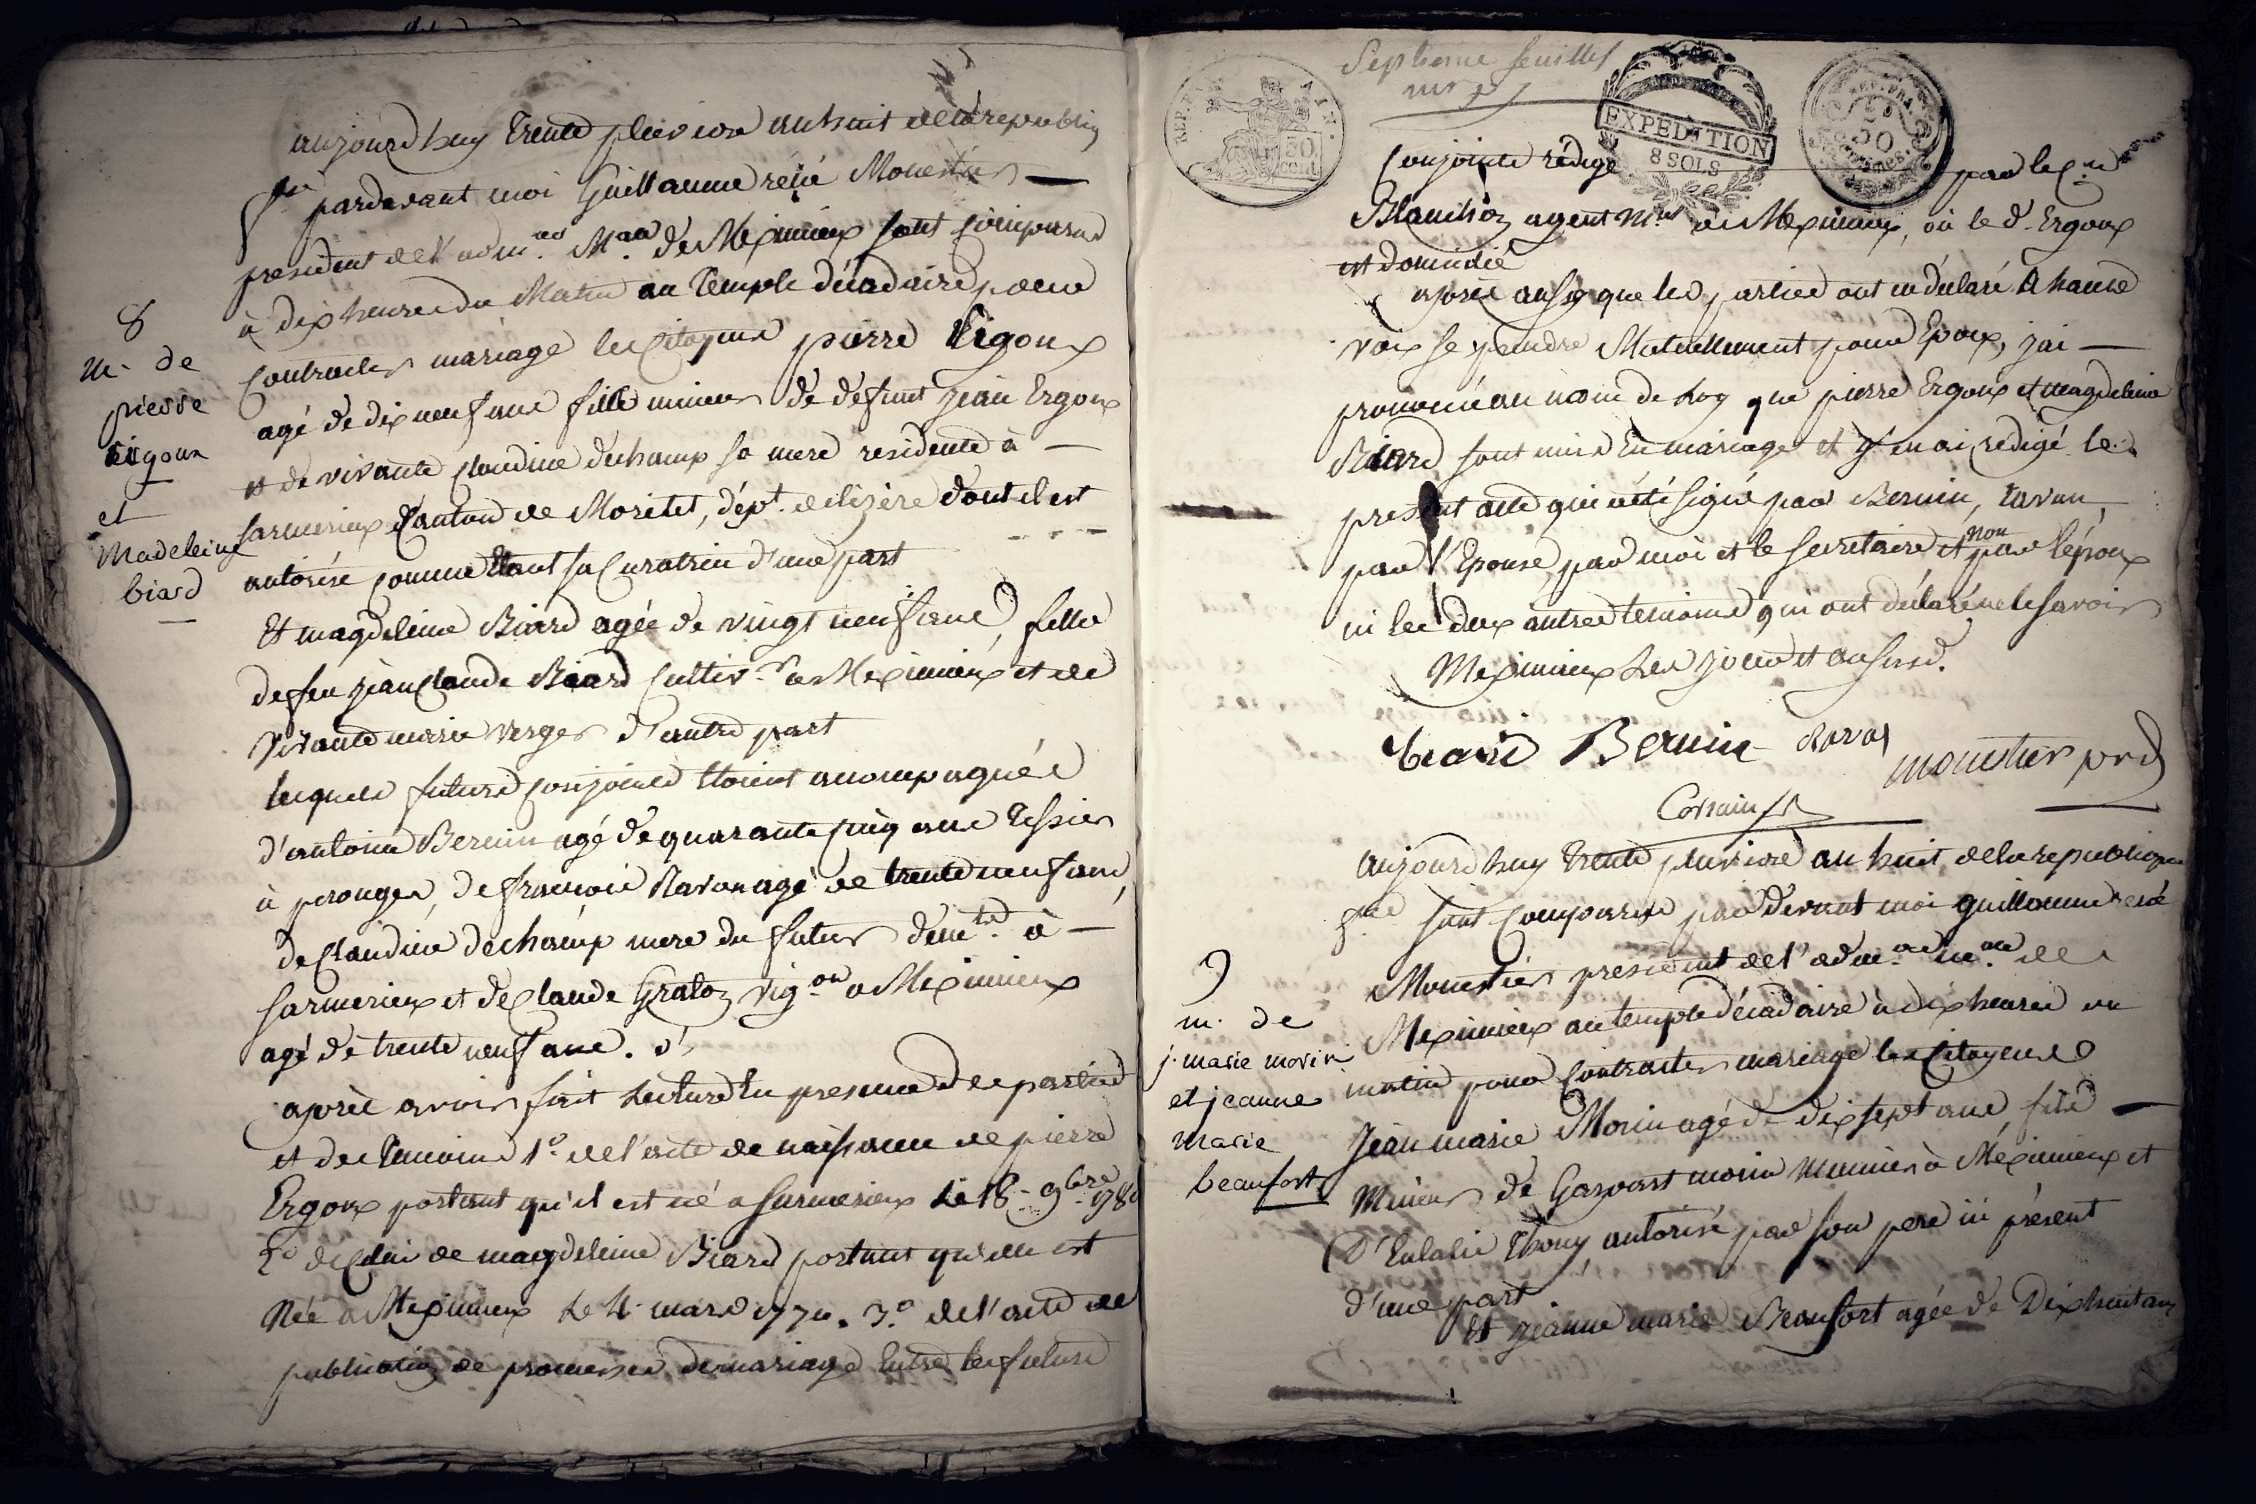 aujourdhuy trente pluviose an huit de la republiq
fse pardevant moi Guillaume réné Monestier
president de l'admon. Male de Meximieux sont comparus
à dix heures du Matin au Temple décadaire pour
contracter mariage les citoyens pierre Ergoux
agé de dix neuf ans fils mineur de defunt jean Ergoux
et de vivante Claudine dechamp sa mere residente à
sarmerieux Canton de Moretet, dépt. de lizère dont il est
autorisé comme étant sa Curatrice d'une part
Et magdeleine Biard agée de vingt neuf ans, fille
de feu jean Claude Biard Cultivr à Meximieux et de
vivante marie verger d'autre part
lesquels futurs conjoints étoient accompagnés
d'antoine Bernin agé de quarante cinq ans Tessier
à perouges, de françois Ravan agé de trente neuf ans,
de Claudine dechamp mere du futur demte à
sarmerieux et de Claude Gratoz vigon à Meximieux
agé de trente neuf ans.
après avoir fait Lecture En presence des parties
et des temoins 1o de l'acte de naissance de pierre
Ergoux portant qu'il est né a sarmerieux Le 18 9bre 1780
2o de Celui de magdeleine Biard portant qu'elle est
Née à Meximieux Le 4 mars 1770. 3o de l'acte de
publication de promesses de mariage Entre les futurs
8
m. de
pierre
Ergoux
et
Madeleine
biard
Septieme feuillet
REP. FRA.
50
EXPEDITION
8 SOLS
conjoints rédigé par le Cen
Blanchoz agent Mal à Meximieux, où le d. Ergoux
est domicilié
après aussy que les parties ont eu déclaré A haute
voix se prendre Mutuellement pour Epoux, jai
prononcé au nom de Loy que pierre Ergoux et magdeleine
Biard sont unis En mariage et j'en ai rédigé le
present acte qui a été signé par Bernin, ravan,
par l'Epouse par moi et le secretaire et non par lépoux
ni les deux autres temoins qui ont déclaré ne le savoir
Meximieux Les jour et an susd.
biard Bernin ravan
monestier prd
aujourdhuy trente pluviose an huit de la republique
fse sont Comparus par devant moi guillaume réné
Monestier president de l'admon male de
Meximieux au temple décadaire à dix heures du
matin pour Contracter mariage les Citoyens
Jean marie Morin agé de dix sept ans fils
Mineur de Gaspart morin meunier à Méximieux et
D'Eulalie Thony autorisé par son pere ici présent
d'une part
Et jeanne marie Beaufort agée de Dix huit ans
9
m. de
j. marie morin
et jeanne
marie
beaufort